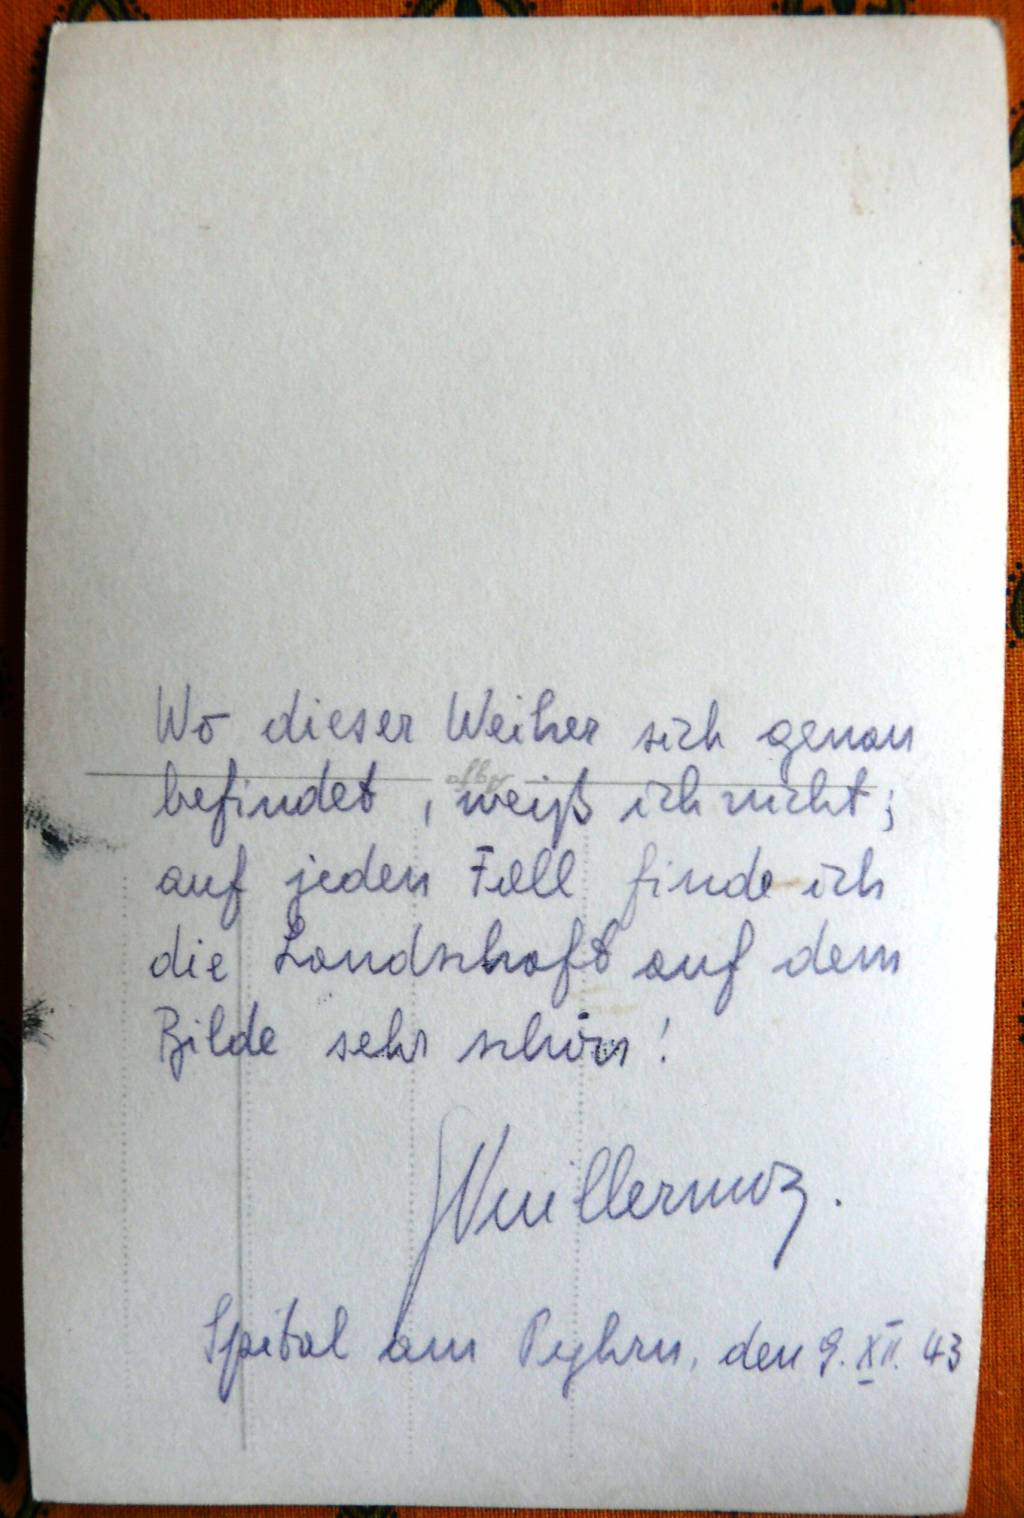 Wo dieser Weiher sich genau
befindet, weiß ich nicht;
auf jeden Fall finde ich
die Landschaft auf dem
Bilde sehr schön!
Vuillermoz.
Spital am Pyhrn, den 9. XII. 43